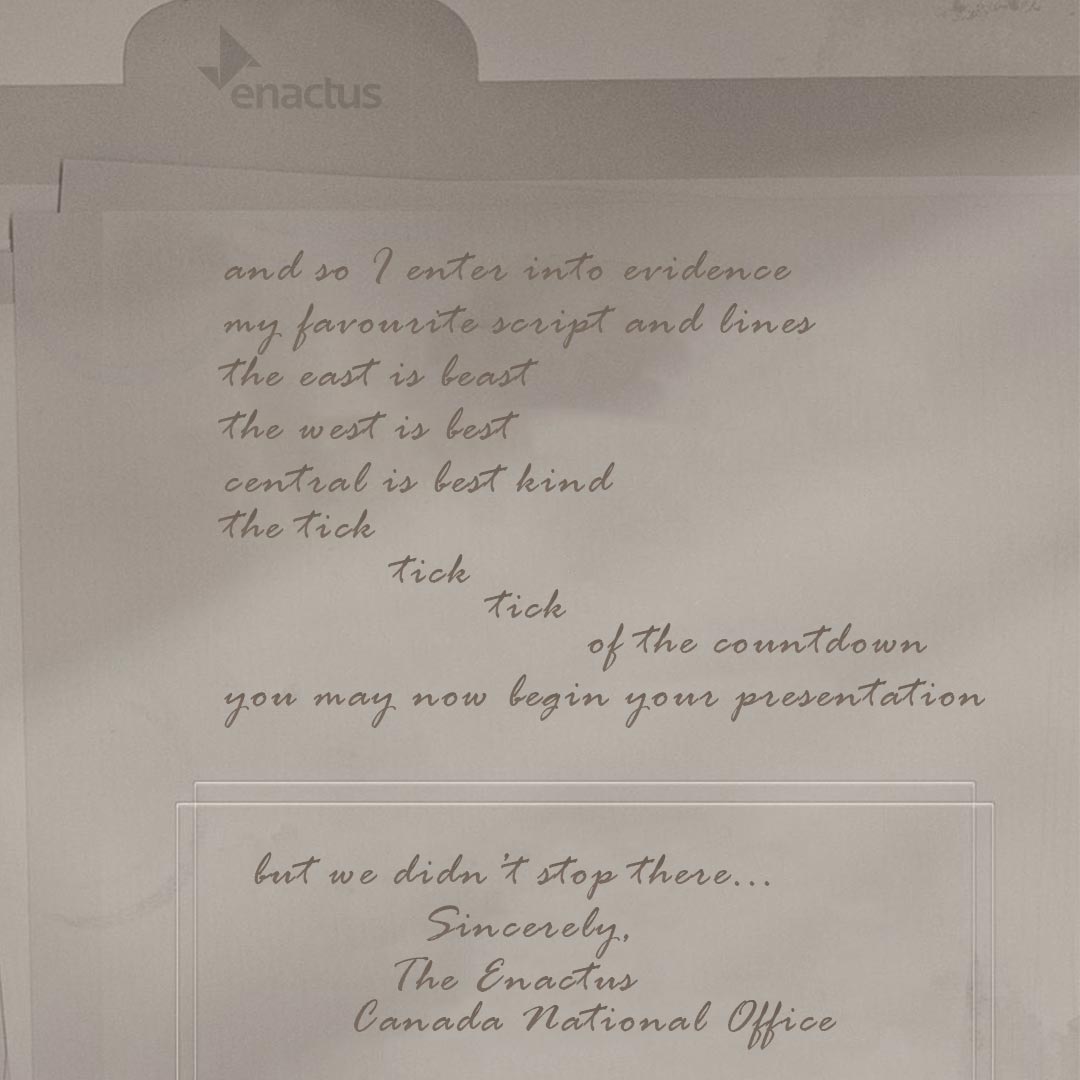 enactus
and so I enter into evidence
my favourite script and lines
the east is beast
the west is best
central is best kind
the tick
tick
tick
of the countdown
you may now begin your presentation
but we didn't stop there...
Sincerely,
The Enactus
Canada National Office